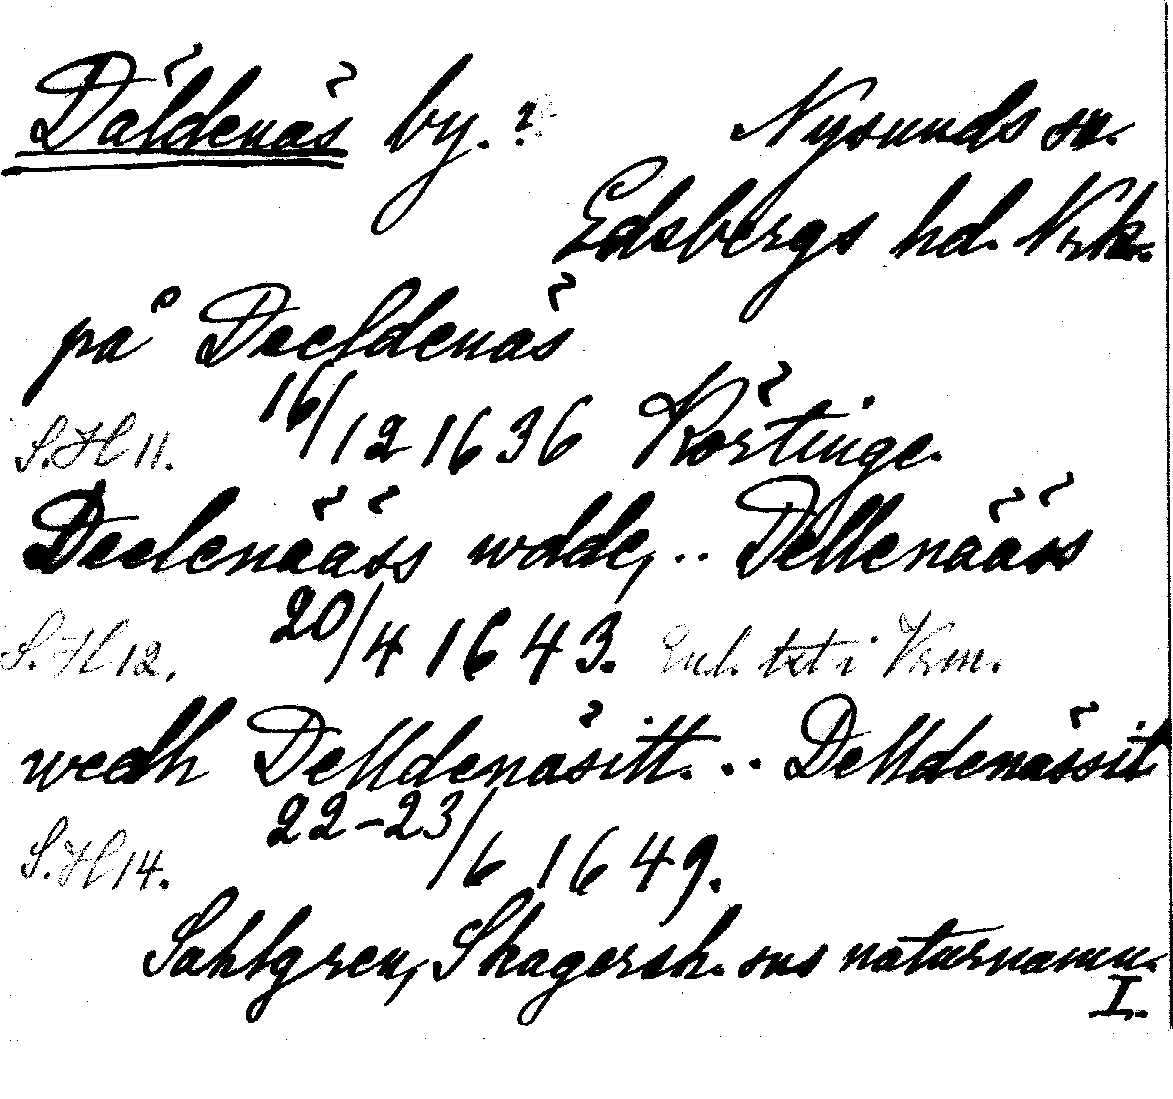 Däldenäs by. ? Nysunds sn.
Edsbergs hd. Nrk.
på Deeldenäs
16/12 1636 Körtinge.
S.H 11.
Deelenääss wdde, .. Dellenääss
S.H 12. 20/4 1643. Enl. txt i Vrm.
wedh Delldenäsitt. .. Delldenässit
22-23/6 1649.
S.H 14.
Sahlgren, Skagersh. sns naturnamn.
I.